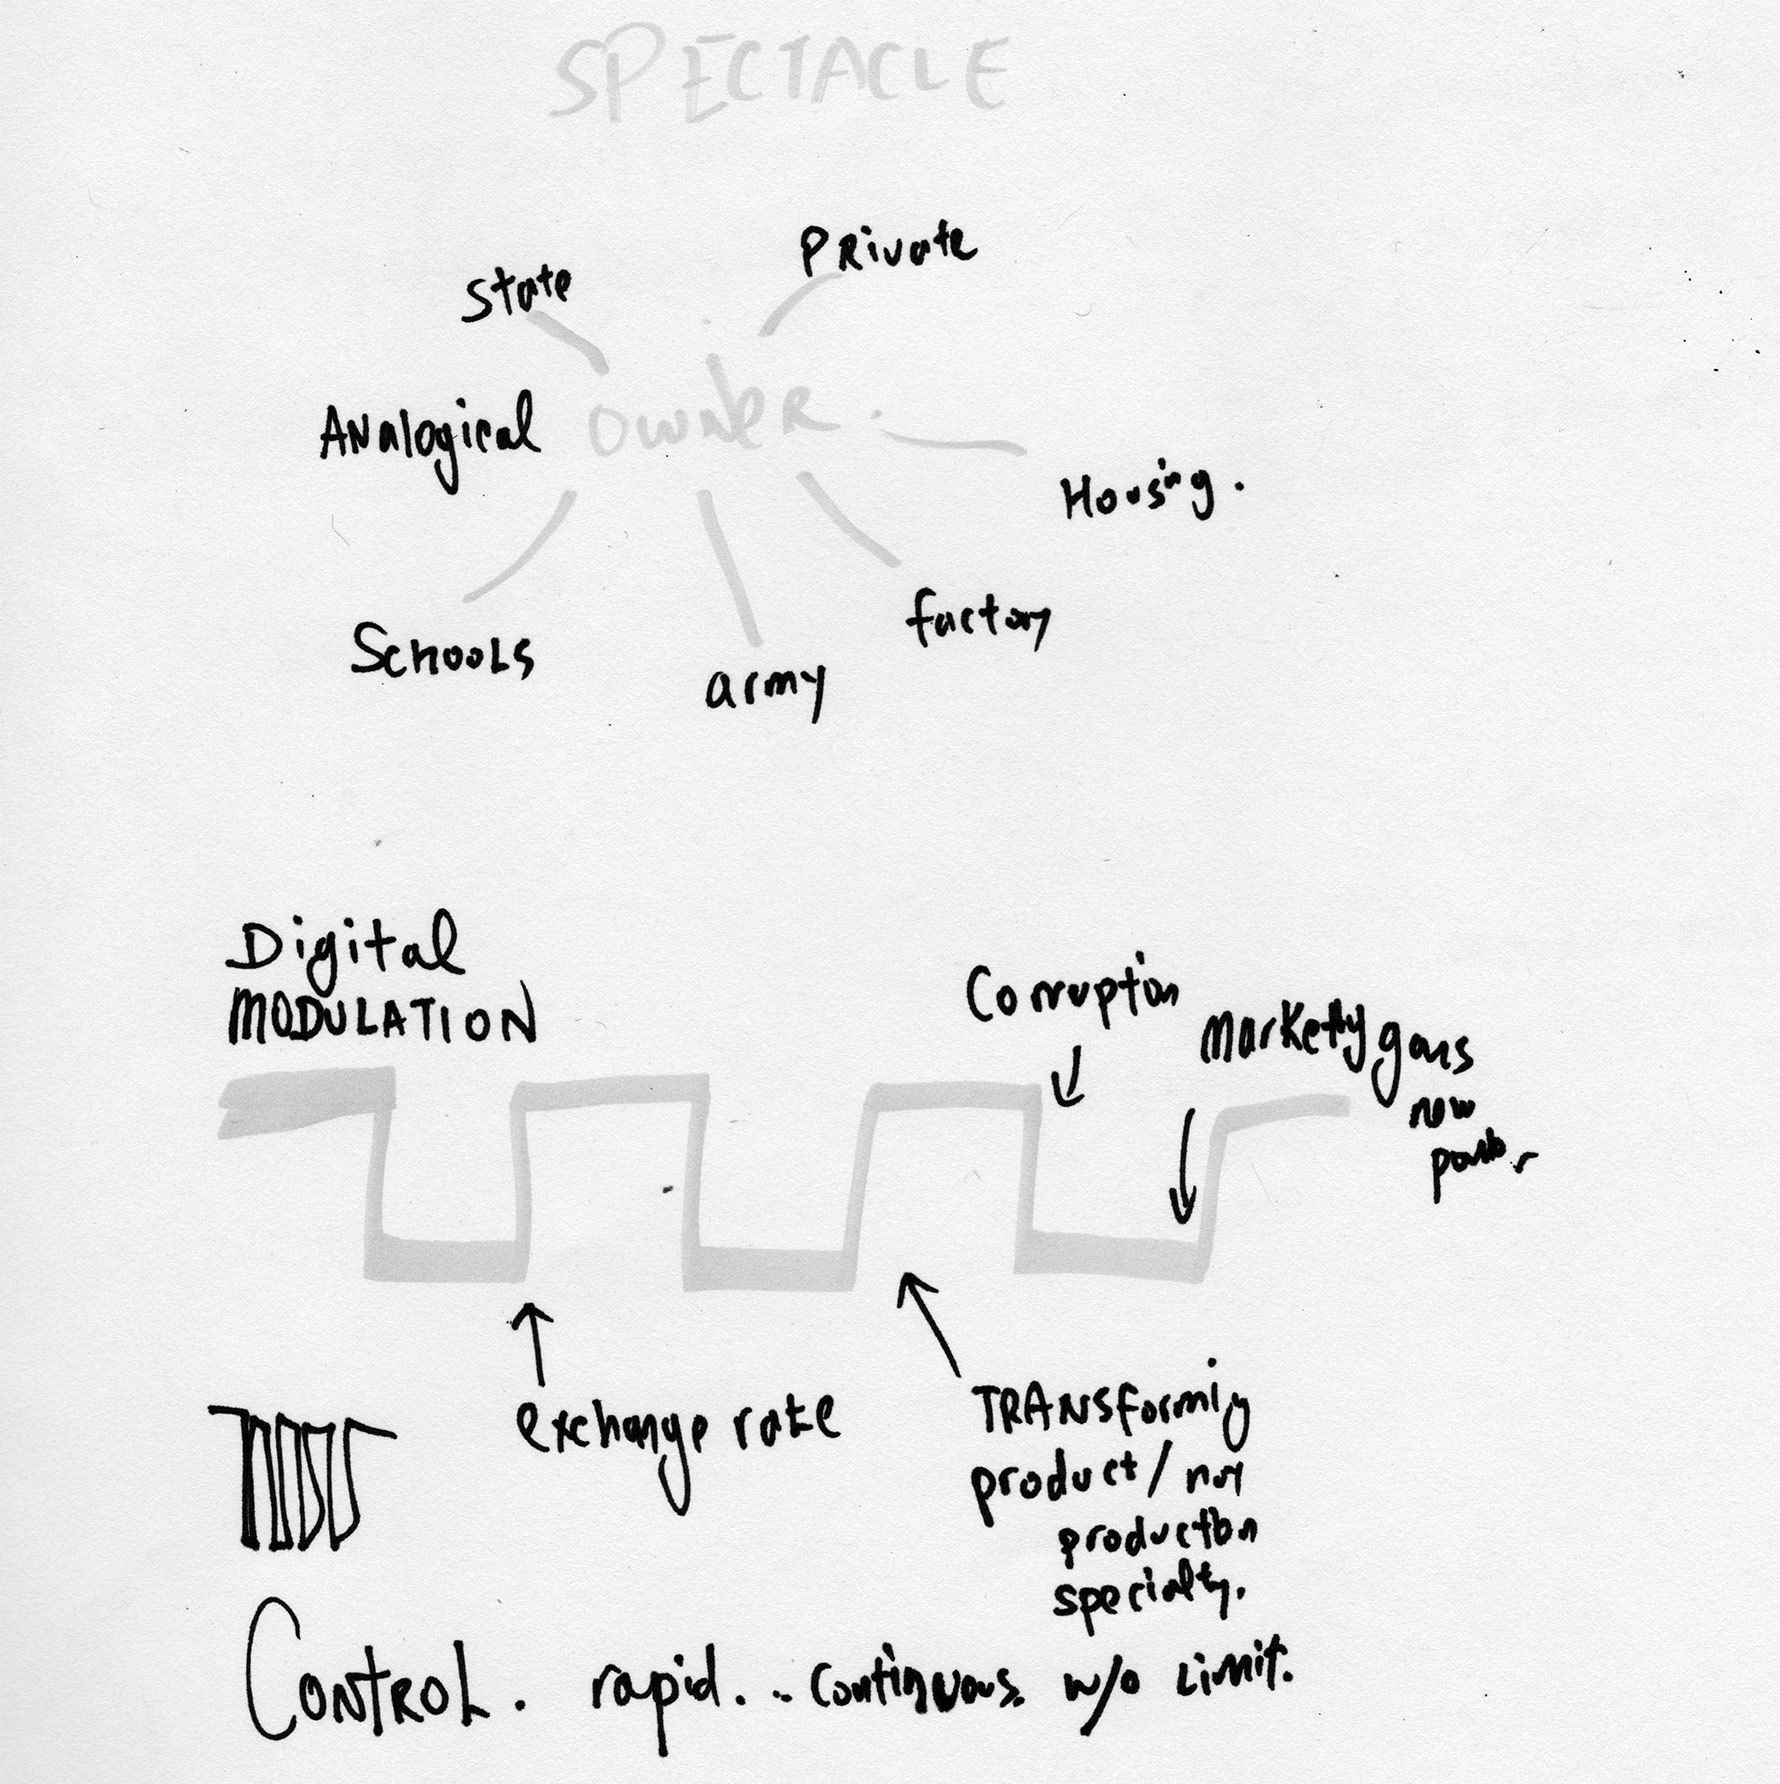 SPECTACLE
Private
State
Analogical
owner.
Housing.
factory
Schools
army
Digital
MODULATION
Corruption
marketing gains
new
exchange rate
TRANSforming
product / not
production
specialty.
CONTROL. rapid... continuous. w/o Limit.